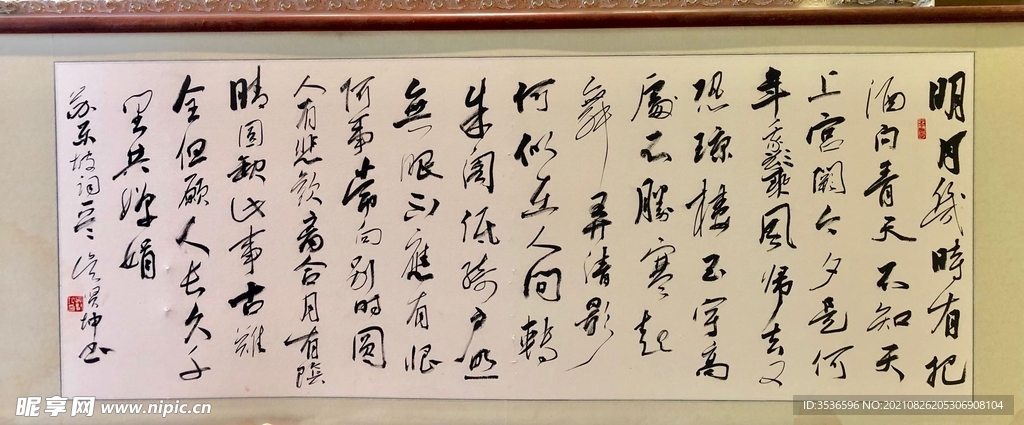 明月幾時有把
酒问青天不知天
上宫闕今夕是何
年我欲乘風归去又
恐琼楼玉宇高
處不勝寒起
舞弄清影
何似在人间轉
朱阁低绮户照
無眠不應有恨
何事常向别时圆
人有悲欢离合月有陰
晴圆缺此事古難
全但願人长久千
里共婵娟
苏东坡词一首 坤书
昵享网 www.nipic.cn
ID:3536596 NO:20210826205306908104